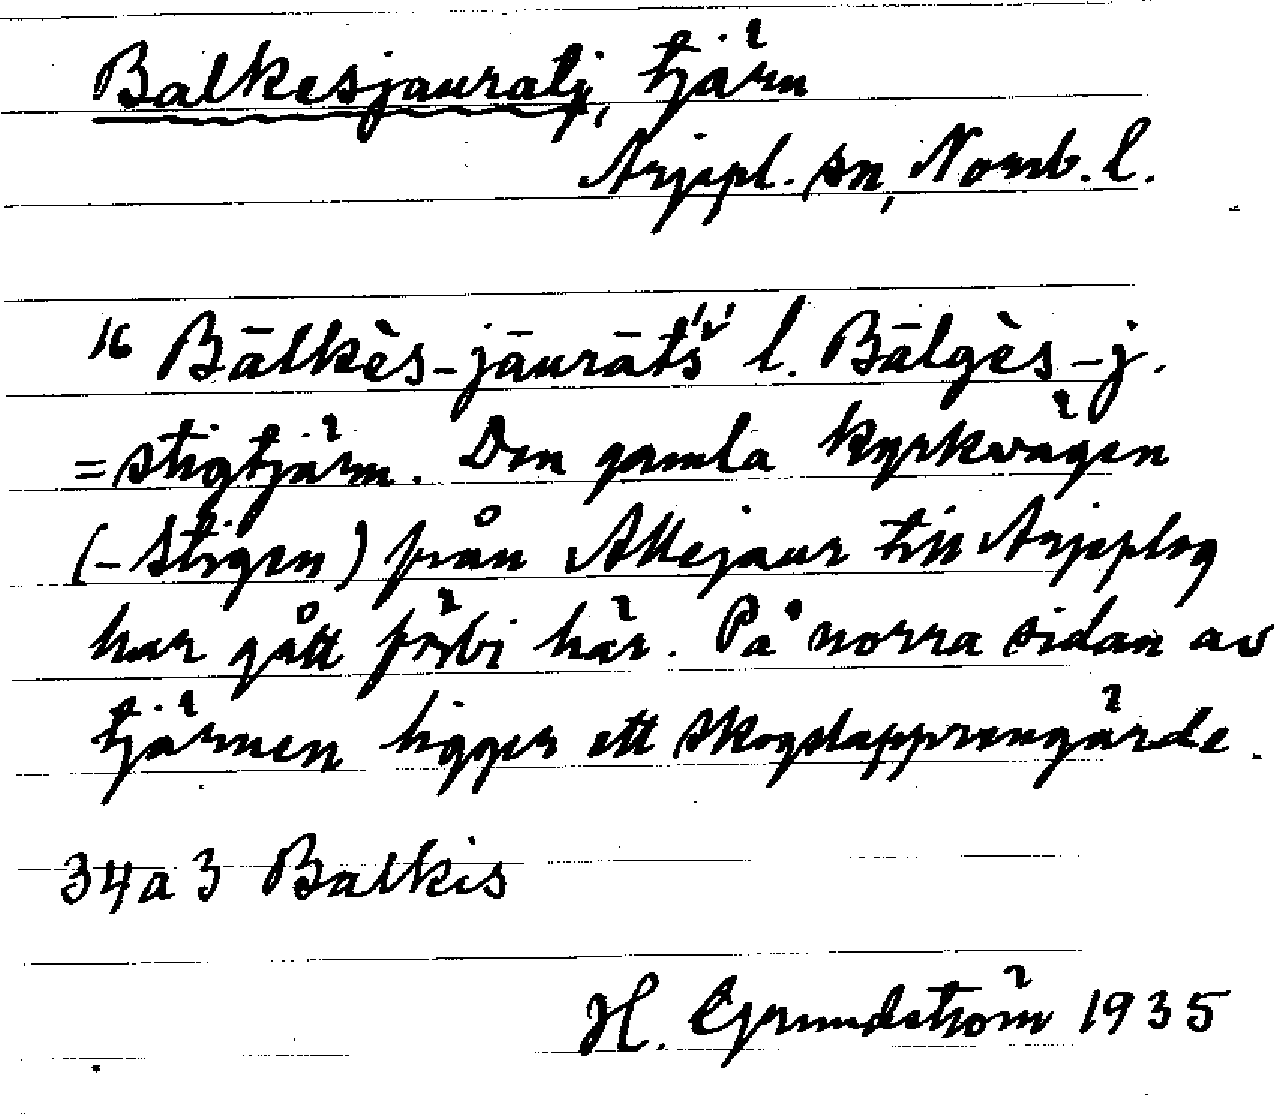 Balkesjauratj, tjärn
Arjepl. sn, Norrb. l.
16 Bālkès-jāurāt́š́ l. Bālgès-j.
= stigtjärn. Den gamla kyrkvägen
(-stigen) från Allejaur till Arjeplog
har gått förbi här. På norra sidan av
tjärnen ligger ett skogslapprengärde.
34a3 Balkis
H. Grundström 1935